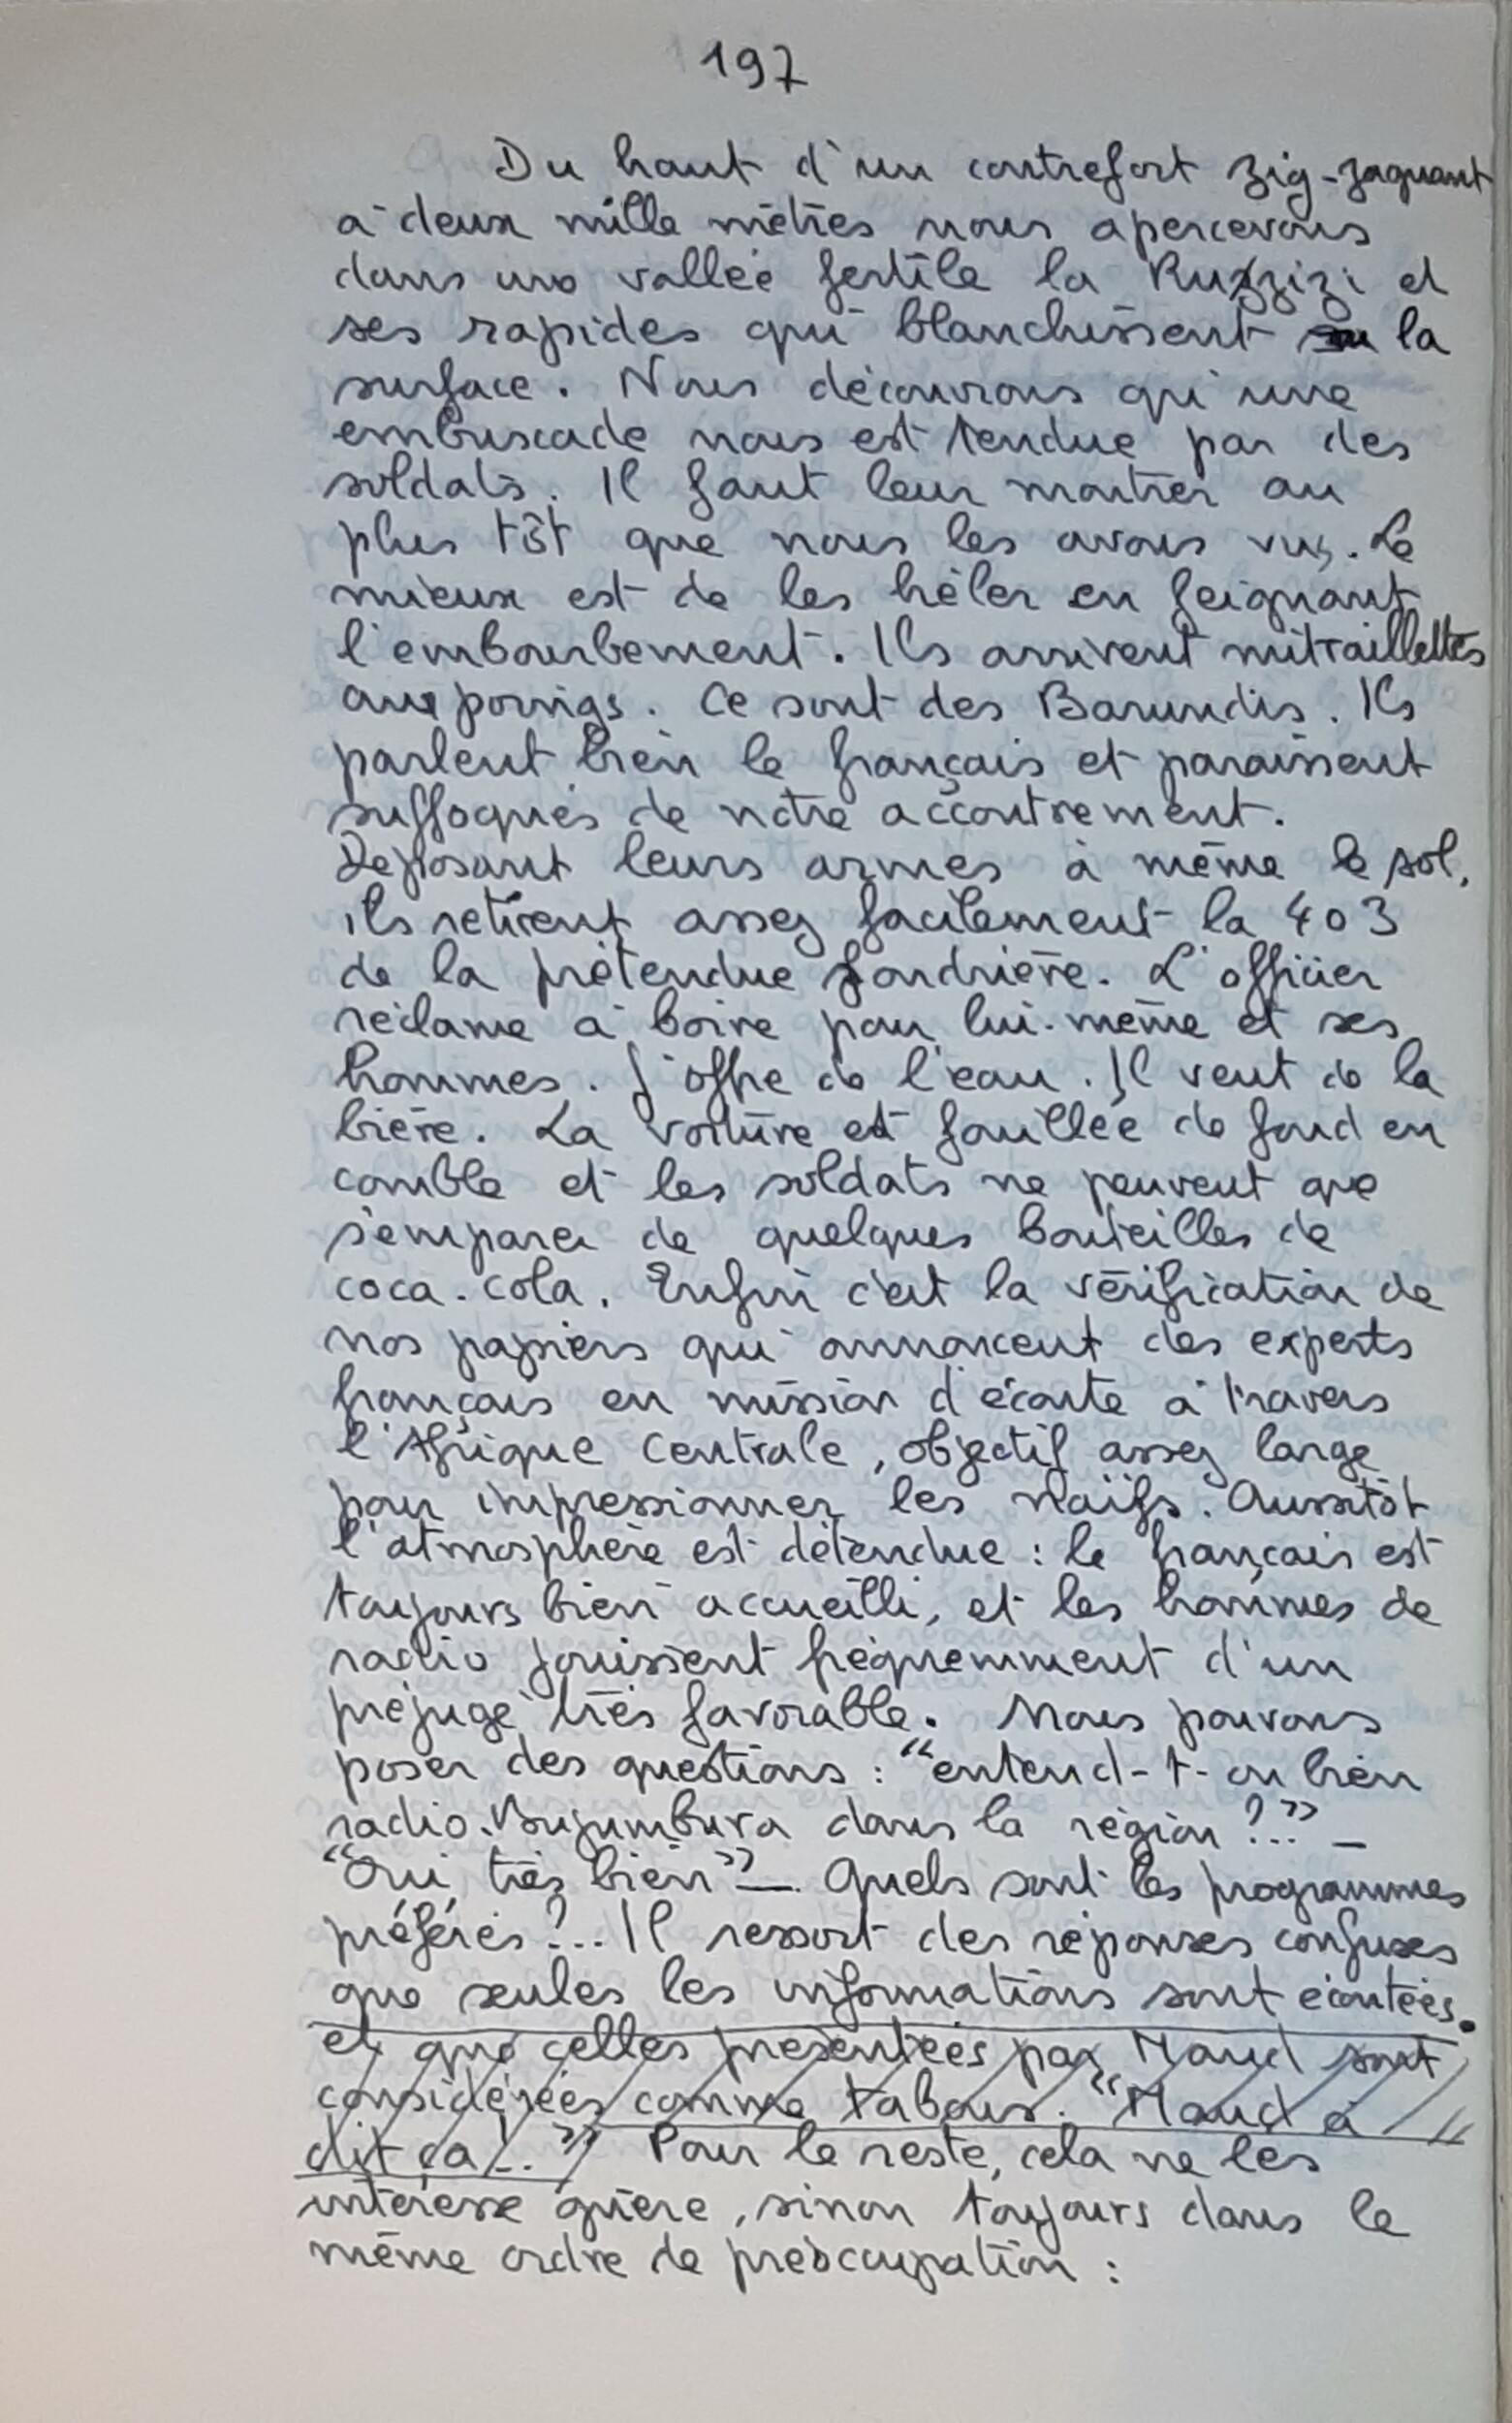 197
Du haut d'un contrefort zig-zaguant
à deux mille mètres nous apercevons
dans une vallée fertile la Ruzzizi et
ses rapides qui blanchissent la
surface. Nous découvrons qu'une
embuscade nous est tendue par des
soldats. Il faut leur montrer au
plus tôt que nous les avons vus. Le
mieux est de les héler en feignant
l'embourbement. Ils arrivent mitraillettes
aux poings. Ce sont des Barundis. Ils
parlent bien le français et paraissent
suffoqués de notre accoutrement.
Déposant leurs armes à même le sol,
ils retirent assez facilement la 403
de la prétendue fondrière. L'officier
réclame à boire pour lui-même et ses
hommes. J'offre de l'eau. Il veut de la
bière. La voiture est fouillée de fond en
comble et les soldats ne peuvent que
s'emparer de quelques bouteilles de
coca-cola. Enfin c'est la vérification de
nos papiers qui annoncent des experts
français en mission d'écoute à travers
l'Afrique Centrale, objectif assez large
pour impressionner les naïfs. Aussitôt
l'atmosphère est détendue : le français est
toujours bien accueilli, et les hommes de
radio jouissent fréquemment d'un
préjugé très favorable. Nous pouvons
poser des questions : "entend-t-on bien
radio-Bujumbura dans la région ?.." _
"Oui, très bien" _ Quels sont les programmes
préférés ?... Il ressort des réponses confuses
que seules les informations sont écoutées.
et que celles présentées par Maud sont
considérées comme tabous. "Maud a
dit ça !.." Pour le reste, cela ne les
intéresse guère, sinon toujours dans le
même ordre de préoccupation :